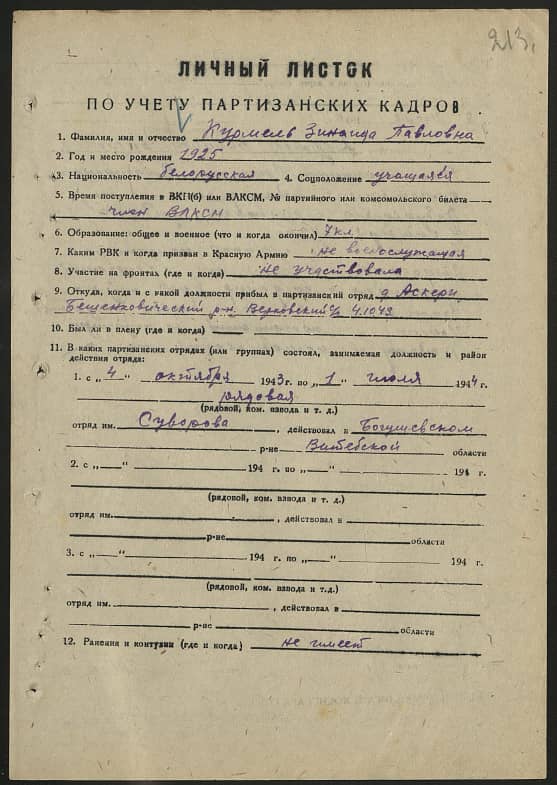 213.
ЛИЧНЫЙ ЛИСТОК
ПО УЧЕТУ ПАРТИЗАНСКИХ КАДРОВ
1. Фамилия, имя и отчество Курмель Зинаида Павловна
2. Год и место рождения 1925
3. Национальность белорусская 4. Соцположение учащаяся
5. Время поступления в ВКП(б) или ВЛКСМ, № партийного или комсомольского билета
член ВЛКСМ
6. Образование: общее и военное (что и когда окончил) 7 кл
7. Каким РВК и когда призван в Красную Армию не военослужащая
8. Участие на фронтах (где и когда) не участвовала
9. Откуда, когда и с какой должности прибыл в партизанский отряд д. Аскери
Бешенковический р-н, Верховский с/с 4.10.43
10. Был ли в плену (где и когда)
11. В каких партизанских отрядах (или группах) состоял, занимаемая должность и район
действия отряда:
1. с „4" октября 1943 г. по „1" июля 1944 г.
рядовая
(рядовой, ком. взвода и т. д.)
отряд им. Суворова, действовал в Богушевском
р-не Витебской области
2. с „—" 194 г. по „—" 194 г.
(рядовой, ком. взвода и т. д.)
отряд им. , действовал в
р-не области
3. с „—" 194 г. по „—" 194 г.
(рядовой, ком. взвода и т.д.)
отряд им. , действовал в
р-не области
12. Ранения и контузии (где и когда) не имеет